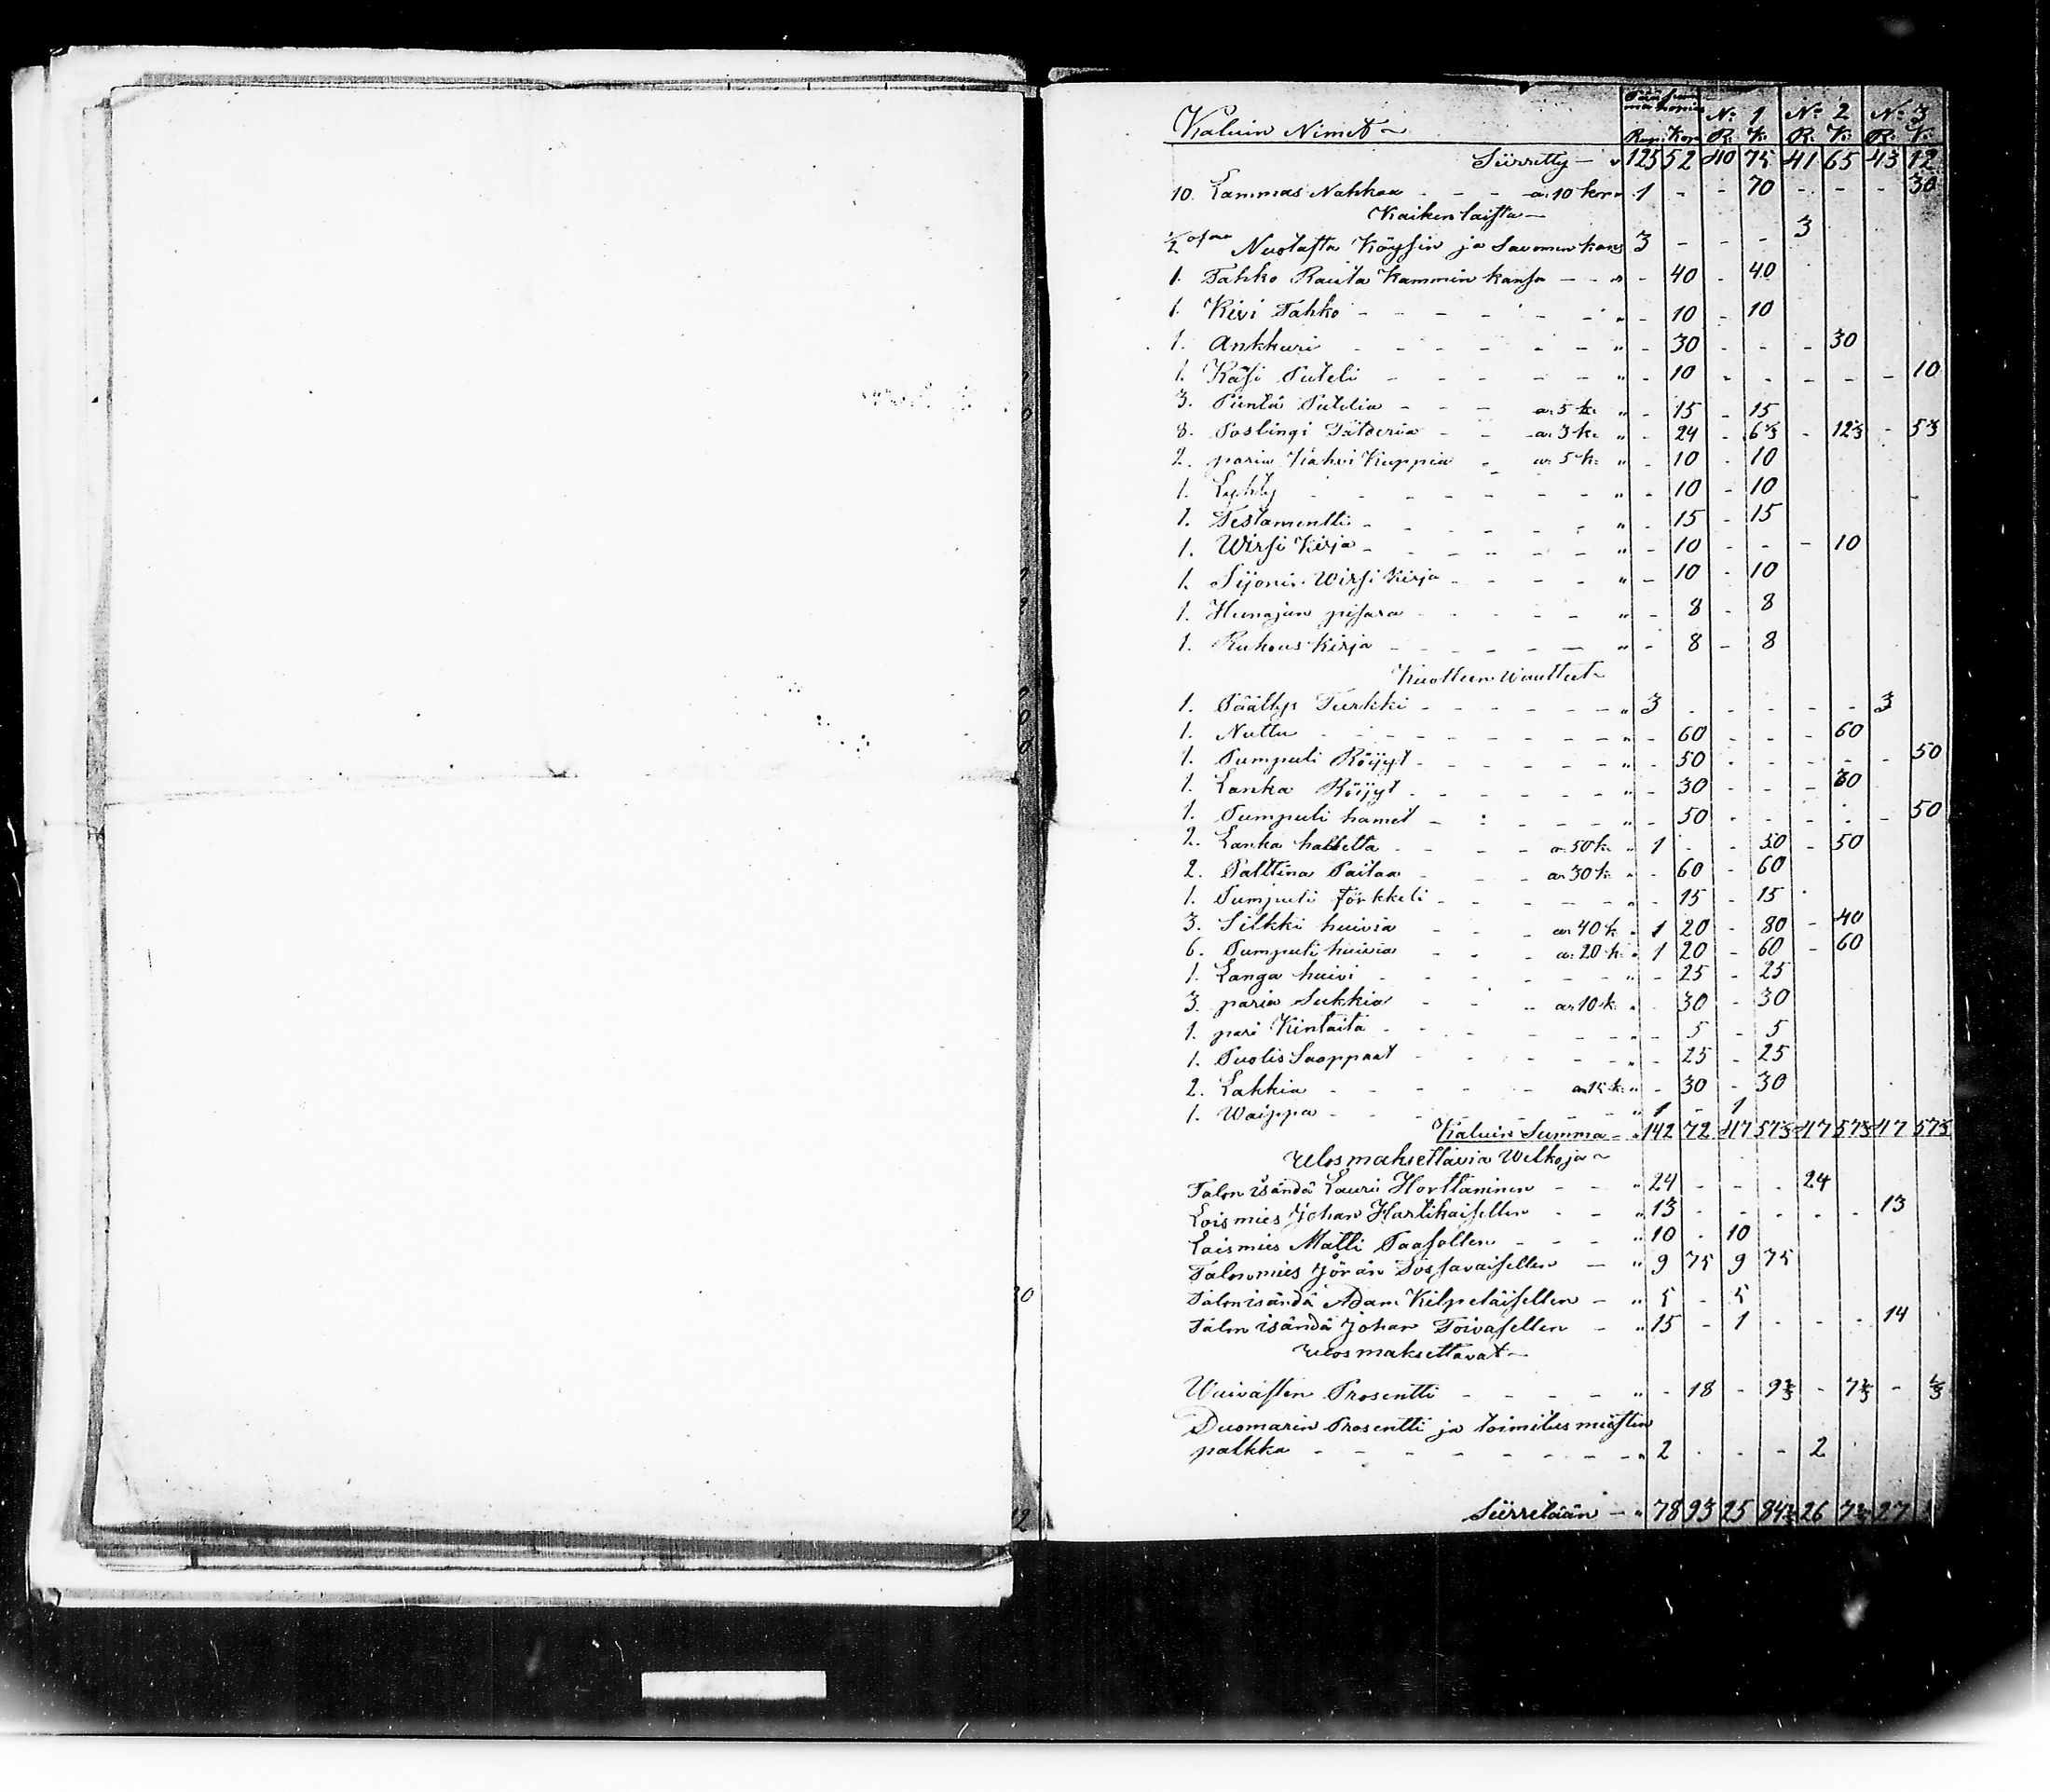 Kaluin Nimet N: 1 N: 2 N: 3
Rup: Kop R: K: R: K: R: K:
Siirretty 125 52 40 75 41 65 43 12
10. Lammas Nahkaa a 10 kop 1 - - 70 - - - 30
Kaikenlaista
1/2 osaa Nuotasta Köysin ja Sawomen kans 3 - - - 3
1. Tahko Rauta Kammin kansa - 40 - 40
1. Kivi Tahko - 10 - 10
1. Ankkuri - 30 - - - 30
1. Käsi Puteli - 10 - - - - - 10
3. Pintä Putelia a 5 k: - 15 - 15
8. Poslingi Tälderiä a 3 k: - 24 - 6⅓ - 12⅓ - 5⅓
2. paria Kahvi Kuppia a 5 k: - 10 - 10
1. Lyhty - 10 - 10
1. Testamentti - 15 - 15
1. Wirsi Kirja - 10 - - - 10
1. Sijonin Wirsi Kirja - 10 - 10
1. Hunajan pisara - 8 - 8
1. Rukous Kirja - 8 - 8
Kuolleen Waatteet
1. Päällys Turkki 3 - - - - - 3
1. Nuttu - 60 - - - 60
1. Pumpuli Röijyt - 50 - - - - - 50
1. Lanka Röijyt - 30 - - - 30
1. Pumpuli hamet - 50 - - - - - 50
2. Lanka hametta a 50 k: 1 - - 50 - 50
2. Palttina Paitaa a 30 k: - 60 - 60
1. Pumpuli Förkkeli - 15 - 15
3. Silkki huivia a 40 k. 1 20 - 80 - 40
6. Pumpuli huivia a 20 k: 1 20 - 60 - 60
1. Langa huivi - 25 - 25
3. paria Sukkia a 10 k. - 30 - 30
1. pari Kintaita - 5 - 5
1. Puolis Saappaat - 25 - 25
2. Lakkia a 15 k: - 30 - 30
1. Waippa 1 - 1
Kaluin Summa 142 72 47 57⅓ 47 57⅓ 47 57⅓
Ulosmaksettavia Welkoja
Talon isändä Lauri Horttäninen 24 - - - 24
Loismies Johan Hartikaisellen 13 - - - - - 13
Loismies Matti Paasollen 10 - 10
Talonmies Jöran Sos savaisellen 9 75 9 75
Talon isändä Adam Kilpeläisellen 5 - 5
Talon isändä Johan Toivasellen 15 - 1 - - - 14
Ulosmaksettavat
Waivasten Prosentti - 18 - 9⅔ - 7⅔ - ⅔
Duomarin Prosentti ja toimitus miesten
palkka 2 - - - 2
Siirretään 78 93 25 84⅔ 26 7⅔ 27